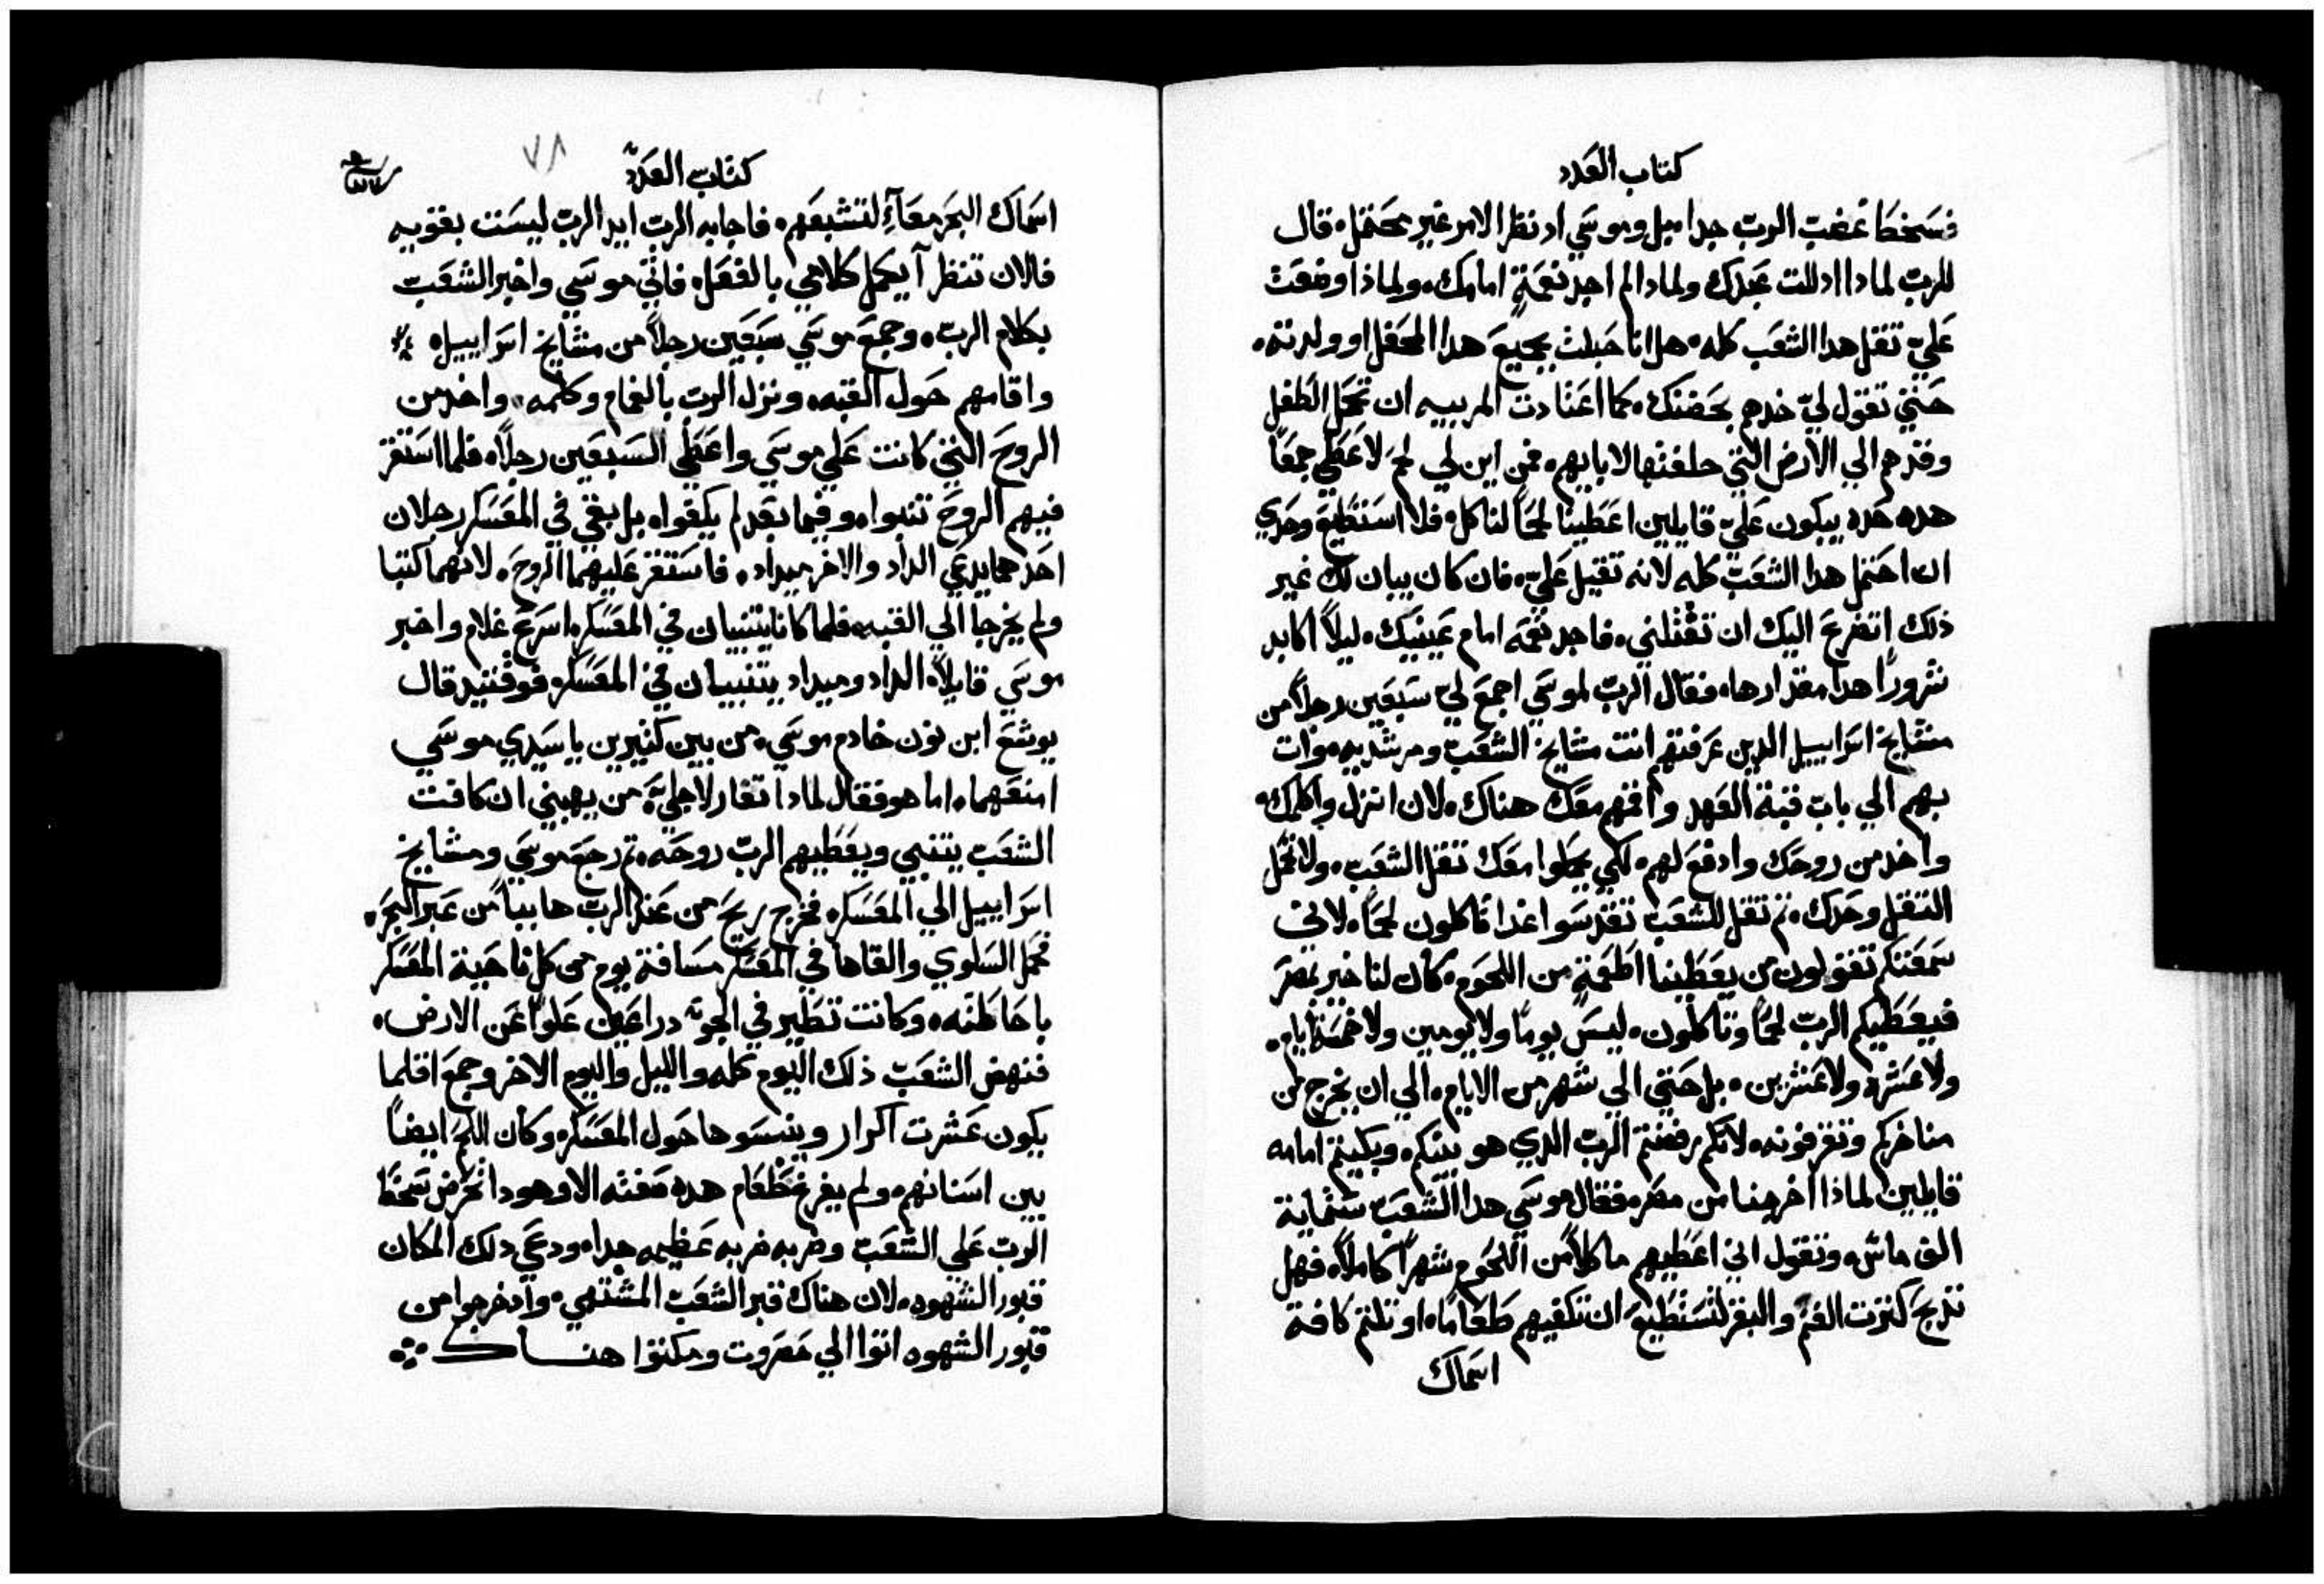 كتاب العدد
فسخطا غضب الرب جدا بل وموسي اد نظر الامر غير محتمل. قال
للرب لمادا ادللت عبدك ولمادا لم اجد نعمة امامك. ولماذا وضعت
علي تقل هدا الشعب كله. هل انا حبلت بجميع هدا المحفل او ولدته.
حتي تقول لي خدهم بحضنك. كما اعتادت المربيه ان تحمل الطفل
وقدهم الي الارض التي حلفتها لابايهم. فمن اين لي لحم لاعطي جمعا
هده هده يبكون علي قايلين اعطينا لحما لناكل. فلا استطيع وحدي
ان احتمل هدا الشعب كله لانه تقيل علي. فان كان يبان لك غير
ذلك اتضرع اليك ان تقتلني. فاجد نعمه امام عينيك. ليلا اكابد
شرورا هدا مقدارها. فقال الرب لموسي اجمع لي سبعين رجلا من
مشايخ اسراييل الدين عرفتهم انت مشايخ الشعب ومرشديه. وات
بهم الي باب قبة العهد واقمهم معك هناك. لان انزل واكلمك.
واخد من روحك وادفع لهم. لكي يحملوا معك تقل الشعب. ولا تحمل
التقل وحدك. تم تقل للشعب تقدسوا غدا تاكلون لحما. لاني
سمعتكم تقولون من يعطينا اطعمة من اللحوم. كان لنا خير بمصر
فيعطيكم الرب لحما وتاكلون. ليس يوما ولا يومين ولا خمسة ايام.
ولا عشره ولا عشرين. بل حتي الي شهر من الايام. الي ان يخرج من
مناخركم وتقرفونه. لانكم رفضتم الرب الدي هو بينكم. وبكيتم امامه
قايلين لماذا اخرجنا من مصر. فقال موسي هدا الشعب ستماية
الف ماش. وتقول اني اعطيهم ماكلا من اللحوم شهرا كاملا. فهل
تدبح كترت الغنم والبقر لتستطيع ان تكفيهم طعاما. او تلتم كافة
اسماك
كتاب العدد
٧٨
اسماك البحر معا لتشبعهم. فاجابه الرب ايد الرب ليست بقويه
فالان تنظر آ يكمل كلامي بالفعل. فاتي موسي واخبر الشعب
بكلام الرب. وجمع موسي سبعين رجلا من مشايخ اسراييل.
واقامهم حول القبه. ونزل الرب بالغمام وكلمه. واخد من
الروح التي كانت علي موسي واعطي السبعين رجلا. فلما استقر
فيهم الروح تنبوا. وفيما بعد لم يكفوا. بل بقي في المعسكر رجلان
احدهما يدعي الداد والاخر ميداد. فاستقر عليهما الروح. لانهما كتبا
ولم يخرجا الي القبه. فلما كانا يتنبيان في المعسكر. اسرع غلام واخبر
موسي قايلا. الداد وميداد يتنبيان في المعسكر. فوقتيد قال
يوشع ابن نون خادم موسي. من بين كتيرين يا سيدي موسي
امنعهما. اما هو فقال لمادا تغار لاجلي. من يهبني ان كافت
الشعب يتنبي ويعطيهم الرب روحه. تم رجع موسي ومشايخ
اسراييل الي المعسكر. فخرج ريح من عند الرب هابيا من عبر البحر.
فحمل السلوي والقاها في المعسكر مسافة يوم من كل ناحية المعسكر
باحاطته. وكانت تطير في الجو دراعين علوا عن الارض.
فنهض الشعب ذلك اليوم كله والليل واليوم الاخر وجمع اقلما
يكون عشرت اكرار وييبسوها حول المعسكر. وكان اللحم ايضا
بين اسنانهم. ولم يفرغ طعام هده صفته الا وهودا نحرض سخط
الرب علي الشعب وضربه ضربه عظيمه جدا. ودعي دلك المكان
قبور الشهوه. لان هناك قبر الشعب المشتهي. وادخرجوا من
قبور الشهوه اتوا الي حصروت ومكتوا هنـــاك